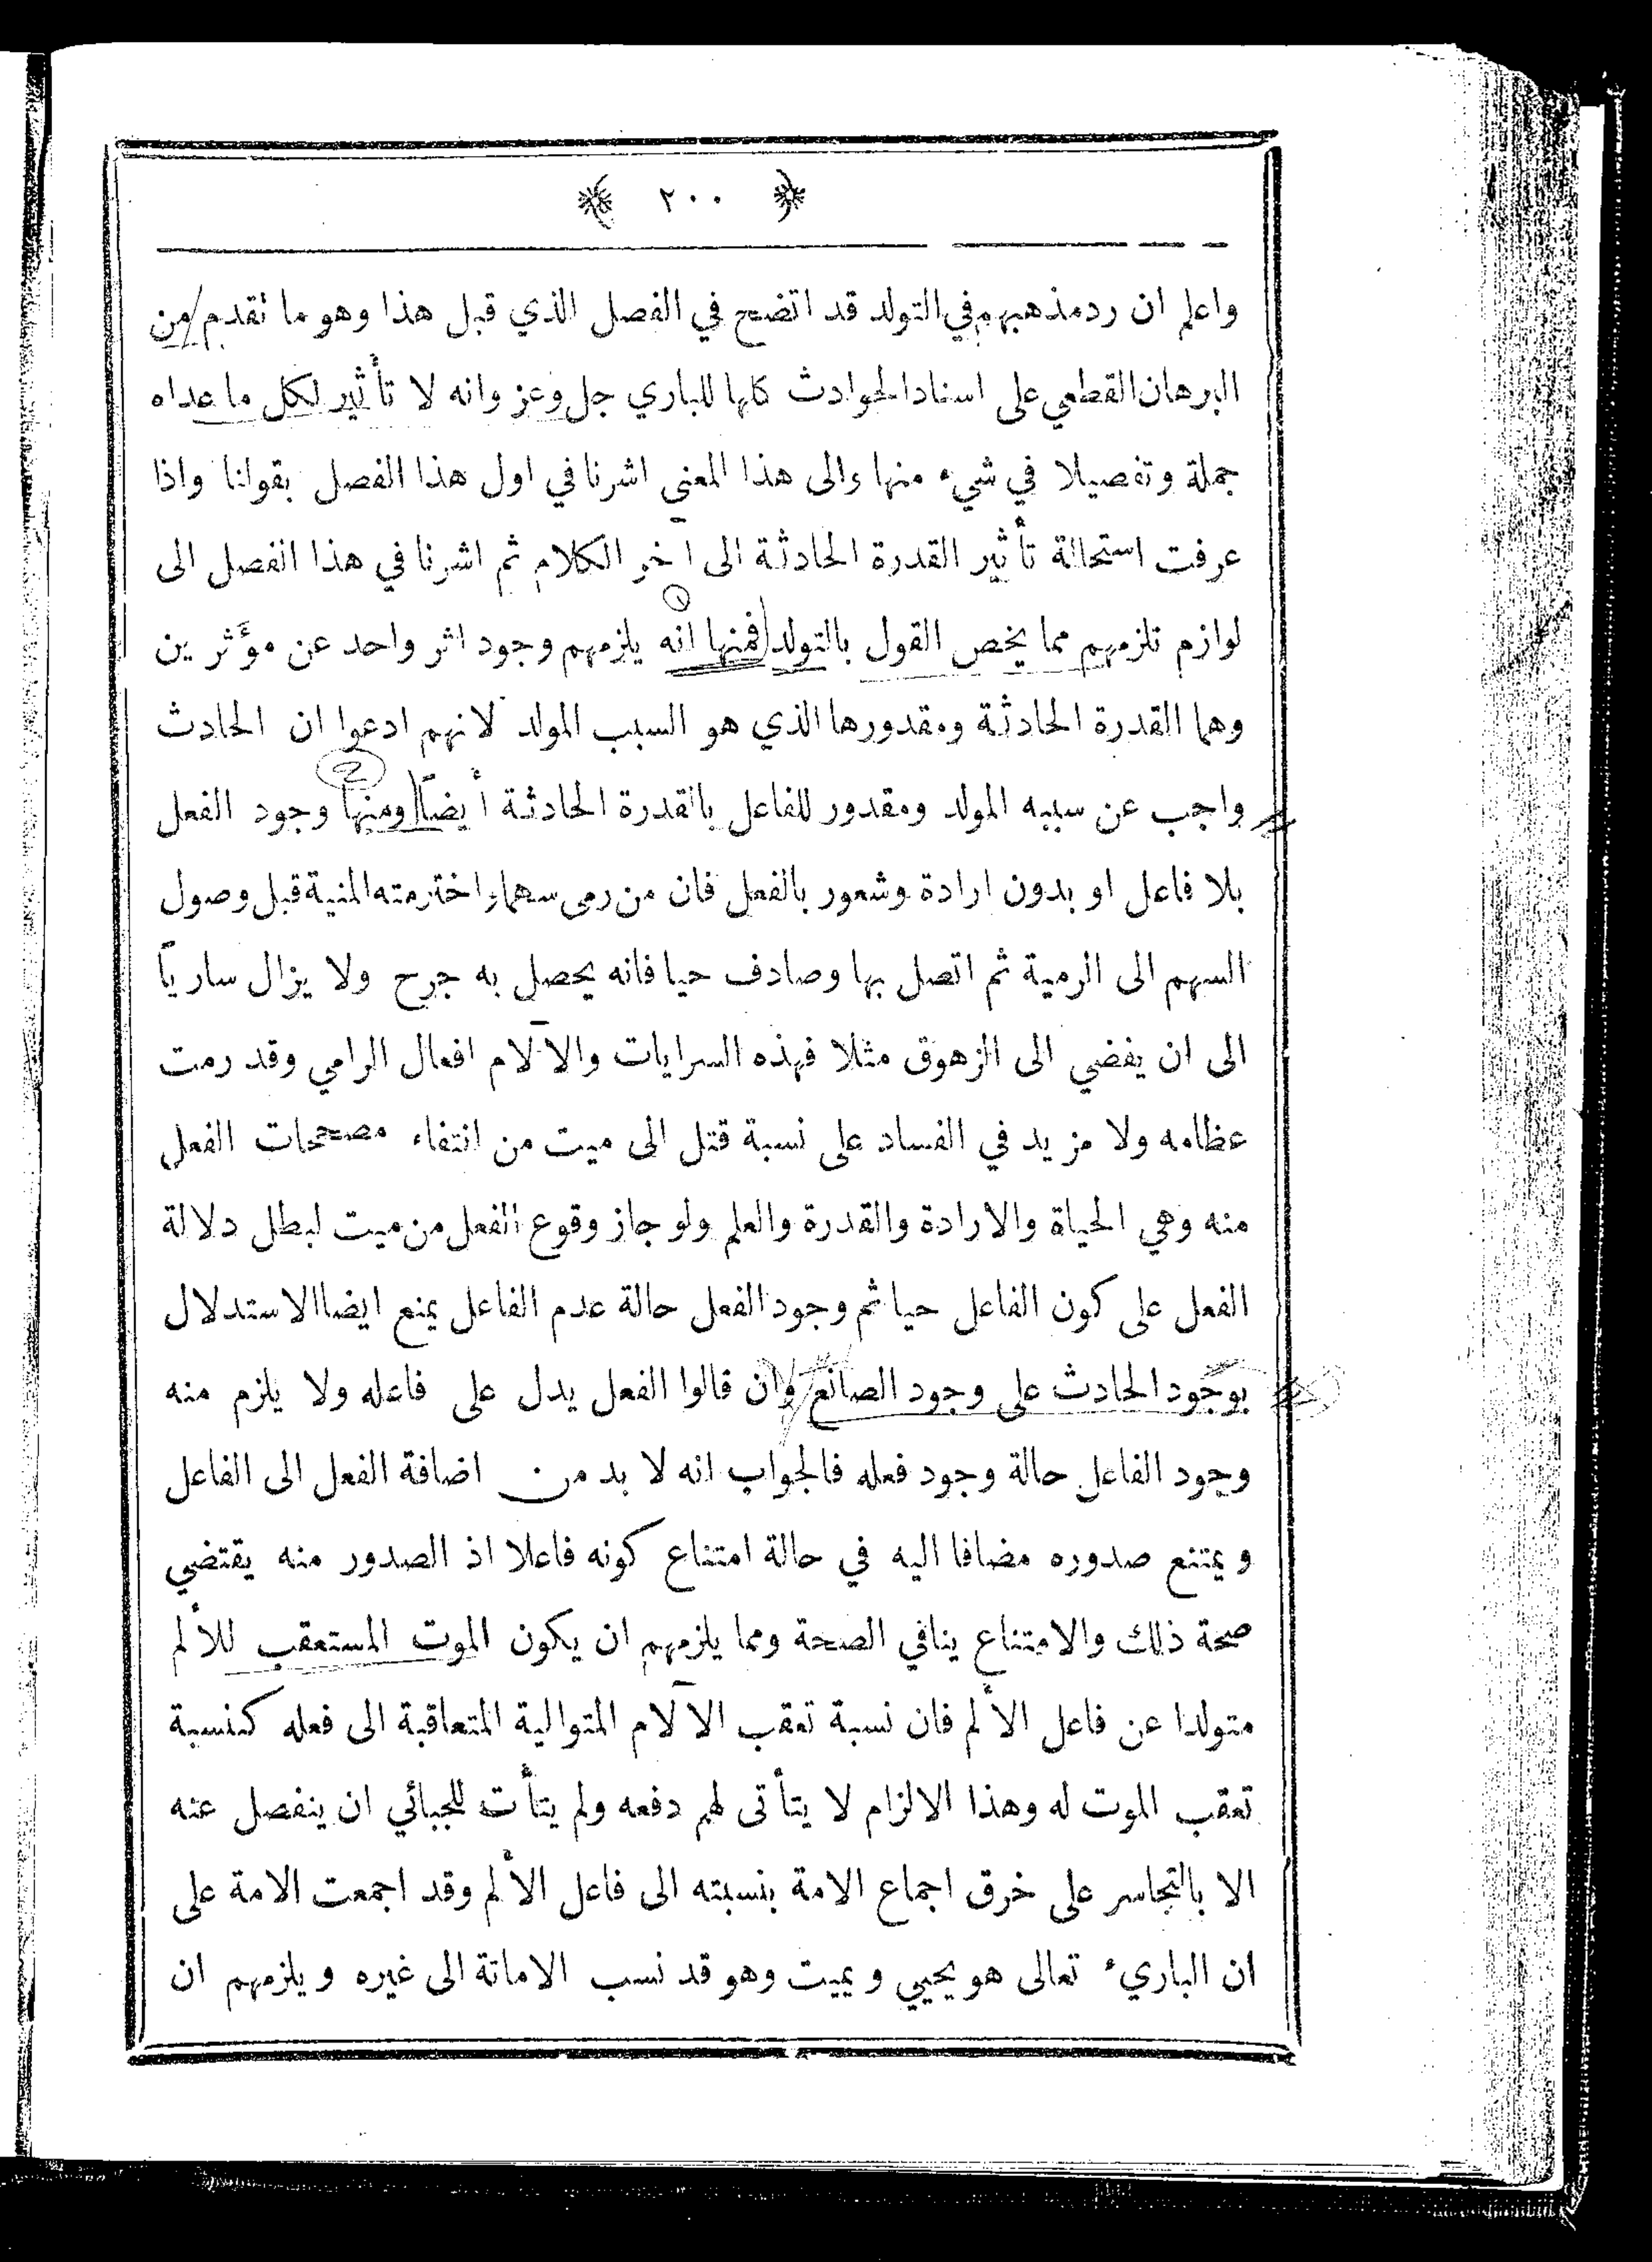 ﴿ ٢٠٠ ﴾
واعلم ان رد مذهبهم في التولد قد اتضح في الفصل الذي قبل هذا وهو ما تقدم من
البرهان القطعي على اسناد الحوادث كلها للباري جل وعز وانه لا تأثير لكل ما عداه
جملة وتفصيلا في شيء منها والى هذا المعنى اشرنا في اول هذا الفصل بقولنا واذا
عرفت استحالة تأثير القدرة الحادثة الى آخر الكلام ثم اشرنا في هذا الفصل الى
لوازم تلزمهم مما يخص القول بالتولد فمنها انه يلزمهم وجود اثر واحد عن مؤثرين
وهما القدرة الحادثة ومقدورها الذي هو السبب المولد لانهم ادعوا ان الحادث
واجب عن سببه المولد ومقدور للفاعل بالقدرة الحادثة أيضاً ومنها وجود الفعل
بلا فاعل او بدون ارادة وشعور بالفعل فان من رمى سهما واخترمته المنية قبل وصول
السهم الى الرمية ثم اتصل بها وصادف حيا فانه يحصل به جرح ولا يزال ساريًا
الى ان يفضي الى الزهوق مثلا فهذه السرايات والآلام افعال الرامي وقد رمت
عظامه ولا مزيد في الفساد على نسبة قتل الى ميت من انتفاء مصححات الفعل
منه وهي الحياة والارادة والقدرة والعلم ولو جاز وقوع الفعل من ميت لبطل دلالة
الفعل على كون الفاعل حيا ثم وجود الفعل حالة عدم الفاعل يمنع ايضا الاستدلال
بوجود الحادث على وجود الصانع وان قالوا الفعل يدل على فاعله ولا يلزم منه
وجود الفاعل حالة وجود فعله فالجواب انه لا بد من اضافة الفعل الى الفاعل
ويمتنع صدوره مضافا اليه في حالة امتناع كونه فاعلا اذ الصدور منه يقتضي
صحة ذلك والامتناع ينافي الصحة ومما يلزمهم ان يكون الموت المستعقب للألم
متولدا عن فاعل الألم فان نسبة تعقب الآلام المتوالية المتعاقبة الى فعله كنسبة
تعقب الموت له وهذا الالزام لا يتأتى لهم دفعه ولم يتأت للجبائي ان ينفصل عنه
الا بالتجاسر على خرق اجماع الامة بنسبته الى فاعل الألم وقد اجمعت الامة على
ان الباريء تعالى هو يحيي ويميت وهو قد نسب الاماتة الى غيره ويلزمهم ان